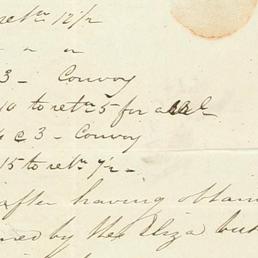 retn 12 1/2
" " "
3 - Convoy
10 to retn 5 for a
6 @ 3 - Convoy
15 to retn 7/2 -
after having obtain
ned by the Eliza but